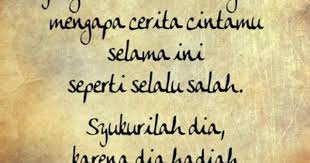 mengapa cerita cintamu
selama ini
seperti selalu salah.
Syukurilah dia,
karena dia hadiah